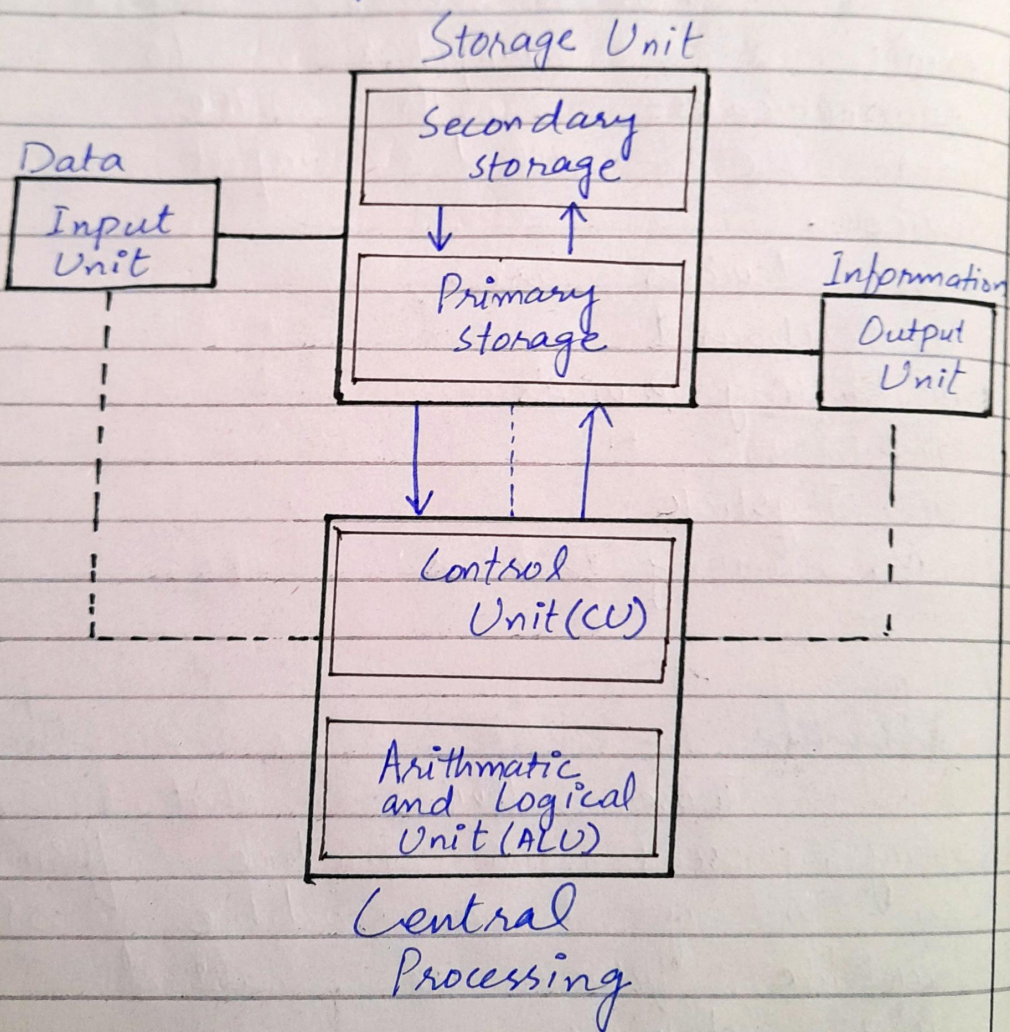 Storage Unit
Secondary
storage
Data
Input
Unit
Primary
storage
Information
Output
Unit
Control
Unit (CU)
Arithmatic
and Logical
Unit (ALU)
Central
Processing